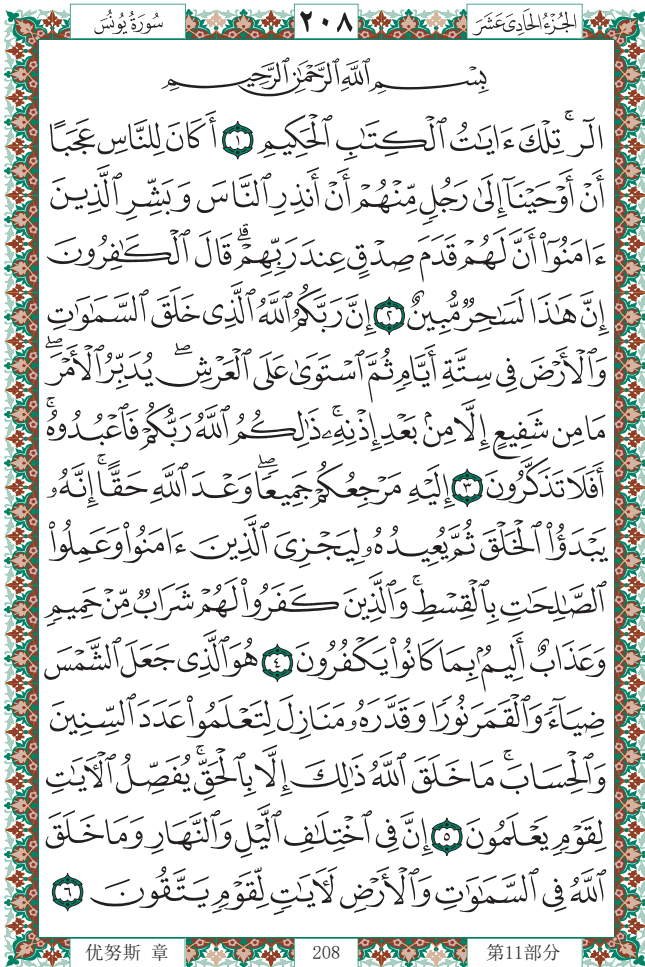 الجُزْءُ الحَادِىَ عَشَرَ
٢٠٨
سُورَةُ يُونُسَ
بِسْمِ ٱللَّهِ ٱلرَّحْمَٰنِ ٱلرَّحِيمِ
الٓرۚ تِلْكَ ءَايَٰتُ ٱلْكِتَٰبِ ٱلْحَكِيمِ ١ أَكَانَ لِلنَّاسِ عَجَبًا
أَنْ أَوْحَيْنَآ إِلَىٰ رَجُلٍ مِّنْهُمْ أَنْ أَنذِرِ ٱلنَّاسَ وَبَشِّرِ ٱلَّذِينَ
ءَامَنُوٓا۟ أَنَّ لَهُمْ قَدَمَ صِدْقٍ عِندَ رَبِّهِمْۗ قَالَ ٱلْكَٰفِرُونَ
إِنَّ هَٰذَا لَسَٰحِرٌ مُّبِينٌ ٢ إِنَّ رَبَّكُمُ ٱللَّهُ ٱلَّذِى خَلَقَ ٱلسَّمَٰوَٰتِ
وَٱلْأَرْضَ فِى سِتَّةِ أَيَّامٍ ثُمَّ ٱسْتَوَىٰ عَلَى ٱلْعَرْشِۖ يُدَبِّرُ ٱلْأَمْرَۖ
مَا مِن شَفِيعٍ إِلَّا مِنۢ بَعْدِ إِذْنِهِۦۚ ذَٰلِكُمُ ٱللَّهُ رَبُّكُمْ فَٱعْبُدُوهُۚ
أَفَلَا تَذَكَّرُونَ ٣ إِلَيْهِ مَرْجِعُكُمْ جَمِيعًاۖ وَعْدَ ٱللَّهِ حَقًّاۚ إِنَّهُۥ
يَبْدَؤُا۟ ٱلْخَلْقَ ثُمَّ يُعِيدُهُۥ لِيَجْزِىَ ٱلَّذِينَ ءَامَنُوا۟ وَعَمِلُوا۟
ٱلصَّٰلِحَٰتِ بِٱلْقِسْطِۚ وَٱلَّذِينَ كَفَرُوا۟ لَهُمْ شَرَابٌ مِّنْ حَمِيمٍ
وَعَذَابٌ أَلِيمٌۢ بِمَا كَانُوا۟ يَكْفُرُونَ ٤ هُوَ ٱلَّذِى جَعَلَ ٱلشَّمْسَ
ضِيَآءً وَٱلْقَمَرَ نُورًا وَقَدَّرَهُۥ مَنَازِلَ لِتَعْلَمُوا۟ عَدَدَ ٱلسِّنِينَ
وَٱلْحِسَابَۚ مَا خَلَقَ ٱللَّهُ ذَٰلِكَ إِلَّا بِٱلْحَقِّۚ يُفَصِّلُ ٱلْءَايَٰتِ
لِقَوْمٍ يَعْلَمُونَ ٥ إِنَّ فِى ٱخْتِلَٰفِ ٱلَّيْلِ وَٱلنَّهَارِ وَمَا خَلَقَ
ٱللَّهُ فِى ٱلسَّمَٰوَٰتِ وَٱلْأَرْضِ لَءَايَٰتٍ لِّقَوْمٍ يَتَّقُونَ ٦
优努斯 章
208
第11部分